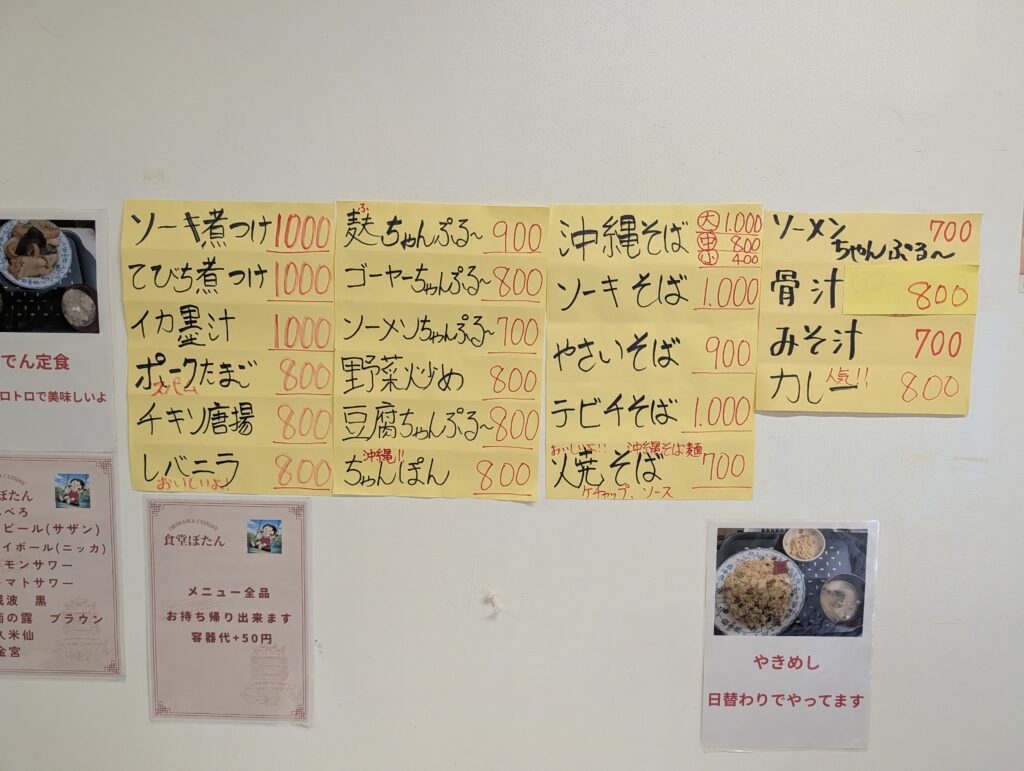 ソーキ煮つけ 1000
てびち煮つけ 1000
イカ墨汁 1000
ポークたまご 800
スパム
チキン唐揚 800
レバニラ 800
おいしいよ!
ふ
麸ちゃんぷる〜 900
ゴーヤーちゃんぷる〜 800
ソーメンちゃんぷる〜 700
野菜炒め 800
豆腐ちゃんぷる〜 800
沖縄!!
ちゃんぽん 800
沖縄そば 大 1.000
中 800
小 400
ソーキそば 1.000
やさいそば 900
テビチそば 1.000
おいしいよ!! 沖縄そば麺
焼そば 700
ケチャップ、ソース
ソーメン
ちゃんぷる〜 700
骨汁 800
みそ汁 700
カレー 人気!! 800
でん定食
ロトロで美味しいよ
CUISINE
ぼたん
べろ
ビール(サザン)
イボール(ニッカ)
モンサワー
マトサワー
波 黒
の露 ブラウン
久米仙
金宮
OKINAWA CUISINE
食堂ぼたん
メニュー全品
お持ち帰り出来ます
容器代+50円
やきめし
日替わりでやってます